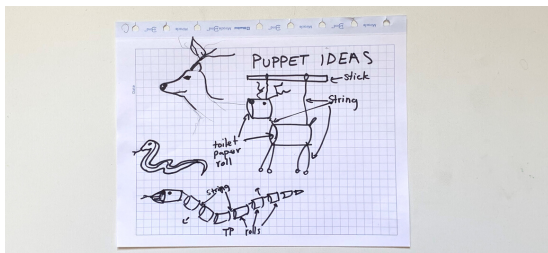 PUPPET IDEAS
stick
string
toilet
paper
roll
string
TP rolls